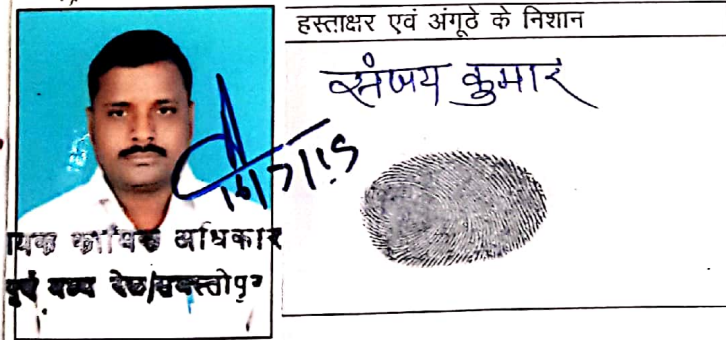 हस्ताक्षर एवं अंगूठे के निशान
संजय कुमार
16/7/15
यक कार्मिक अधिकार
पूर्व मध्य रेल/समस्तीपुर